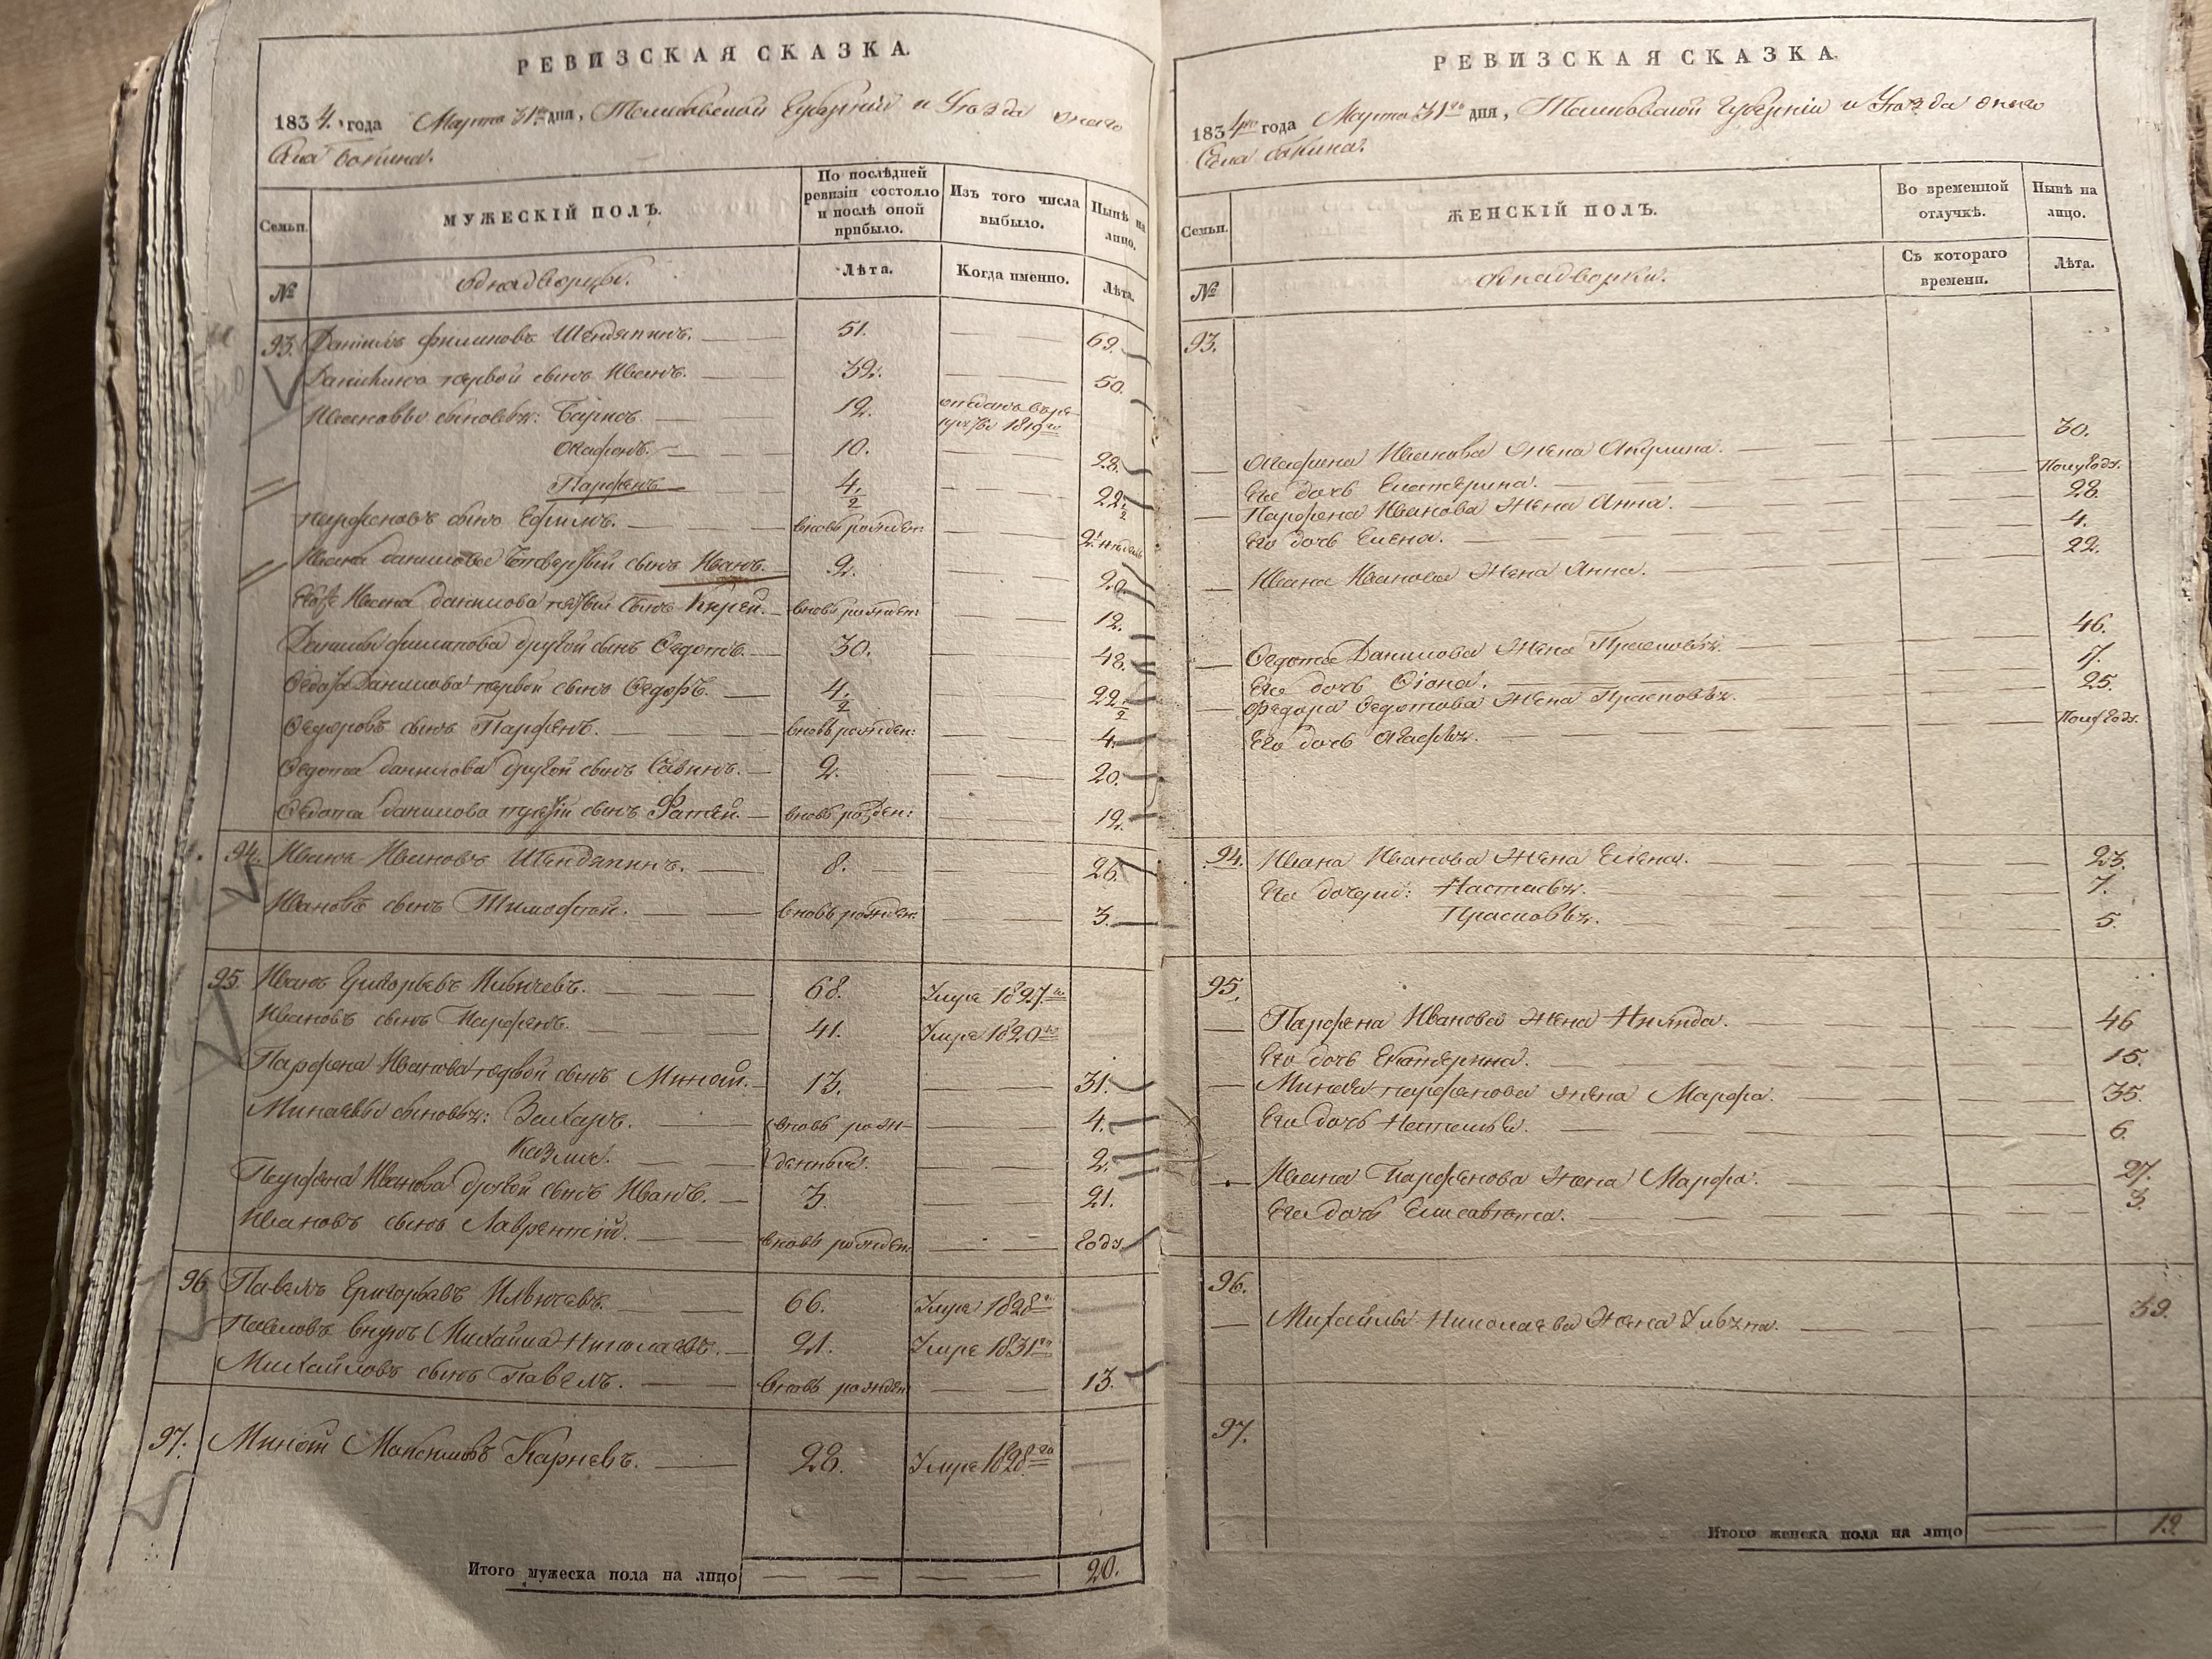 РЕВИЗСКАЯ СКАЗКА.
1834. года Марта 31го дня, Тамбовской Губернии и Уезда онаго
Села Бокина.
Семьи.
МУЖЕСКІЙ ПОЛЪ.
По послѣдней ревизіи состояло и послѣ оной прибыло.
Изъ того числа выбыло.
Нынѣ на лицо.
№
однадворцы.
Лѣта.
Когда именно.
Лѣта.
93. Данилъ Филиповъ Шендяпинъ. 51. 69.
Данилина первой сынъ Иванъ. 32. 50.
Ивановы сыновья: Барис 12. отданъ въ рекруты 1819го
Агафонъ. 10. 28.
Парфенъ 4 1/2 22 1/2
Парфеновъ сынъ Ефимъ. вновь рожден: 2. недель
Ивана Данилова четвертый сынъ Иванъ. 2. 20.
Его Ивана Данилова пятый сынъ Кирей. вновь рожден: 12.
Данилы Филипова другой сынъ Федотъ. 30. 48.
Федота Данилова первой сынъ Федоръ. 4 1/2 22 1/2
Федоровъ сынъ Парфенъ. вновь рожден: 4.
Федота Данилова другой сынъ Савинъ. 2. 20.
Федота Данилова третій сынъ Фатей. вновь рожден: 12.
94. Иванъ Ивановъ Шендяпинъ. 8. 26.
Ивановъ сынъ Тимофей. вновь рожден: 3.
95. Иванъ Григорьевъ 68. Умре 1827го
Ивановъ сынъ Парфенъ. 41. Умре 1820го
Парфена Иванова первой сынъ Минай. 13. 31.
Минаевы сыновья: Захаръ. вновь рож- 4.
Козма. денныя. 2.
Парфена Иванова другой сынъ Иванъ. 3. 21.
Ивановъ сынъ Лаврентей. вновь рожден: годъ
96. Павелъ Григорьевъ 66. Умре 1828го
Павловъ внукъ Михайла Николаевъ. 21. Умре 1831го
Михайловъ сынъ Павелъ. вновь рожден: 13.
97. Минай Максимовъ Карневъ. 28. Умре 1828го
Итого мужеска пола на лицо 20.
РЕВИЗСКАЯ СКАЗКА.
1834го года Марта 31го дня, Тамбовской Губерніи и Уезда онаго
Села Бокина.
Семьи.
ЖЕНСКІЙ ПОЛЪ.
Во временной отлучкѣ.
Нынѣ на лицо.
№
однадворки.
Съ котораго времени.
Лѣта.
93.
Агафона Иванова жена Акулина. 30.
Его дочь Екатерина. Полугоду.
Парфена Иванова жена Анна. 28.
Его дочь Елена. 4.
Ивана Иванова жена Анна. 22.
Федота Данилова жена Прасковья. 46.
Его дочь Фіона. 7.
Федора Федотова жена Прасковья. 25.
Его дочь Агафья. Полугоду.
94. Ивана Иванова жена Елена. 23.
Его дочери: Настасья. 7.
Прасковья. 5.
95.
Парфена Иванова жена 46
Его дочь Екатерина. 15.
Миная Парфенова жена Марфа. 35.
Его дочь Наталья. 6.
Ивана Парфенова жена Марфа. 27.
Его дочь Елисавета. 3.
96.
Михайлы Николаева жена Ульяна. 39.
97.
Итого женска пола на лицо 19.